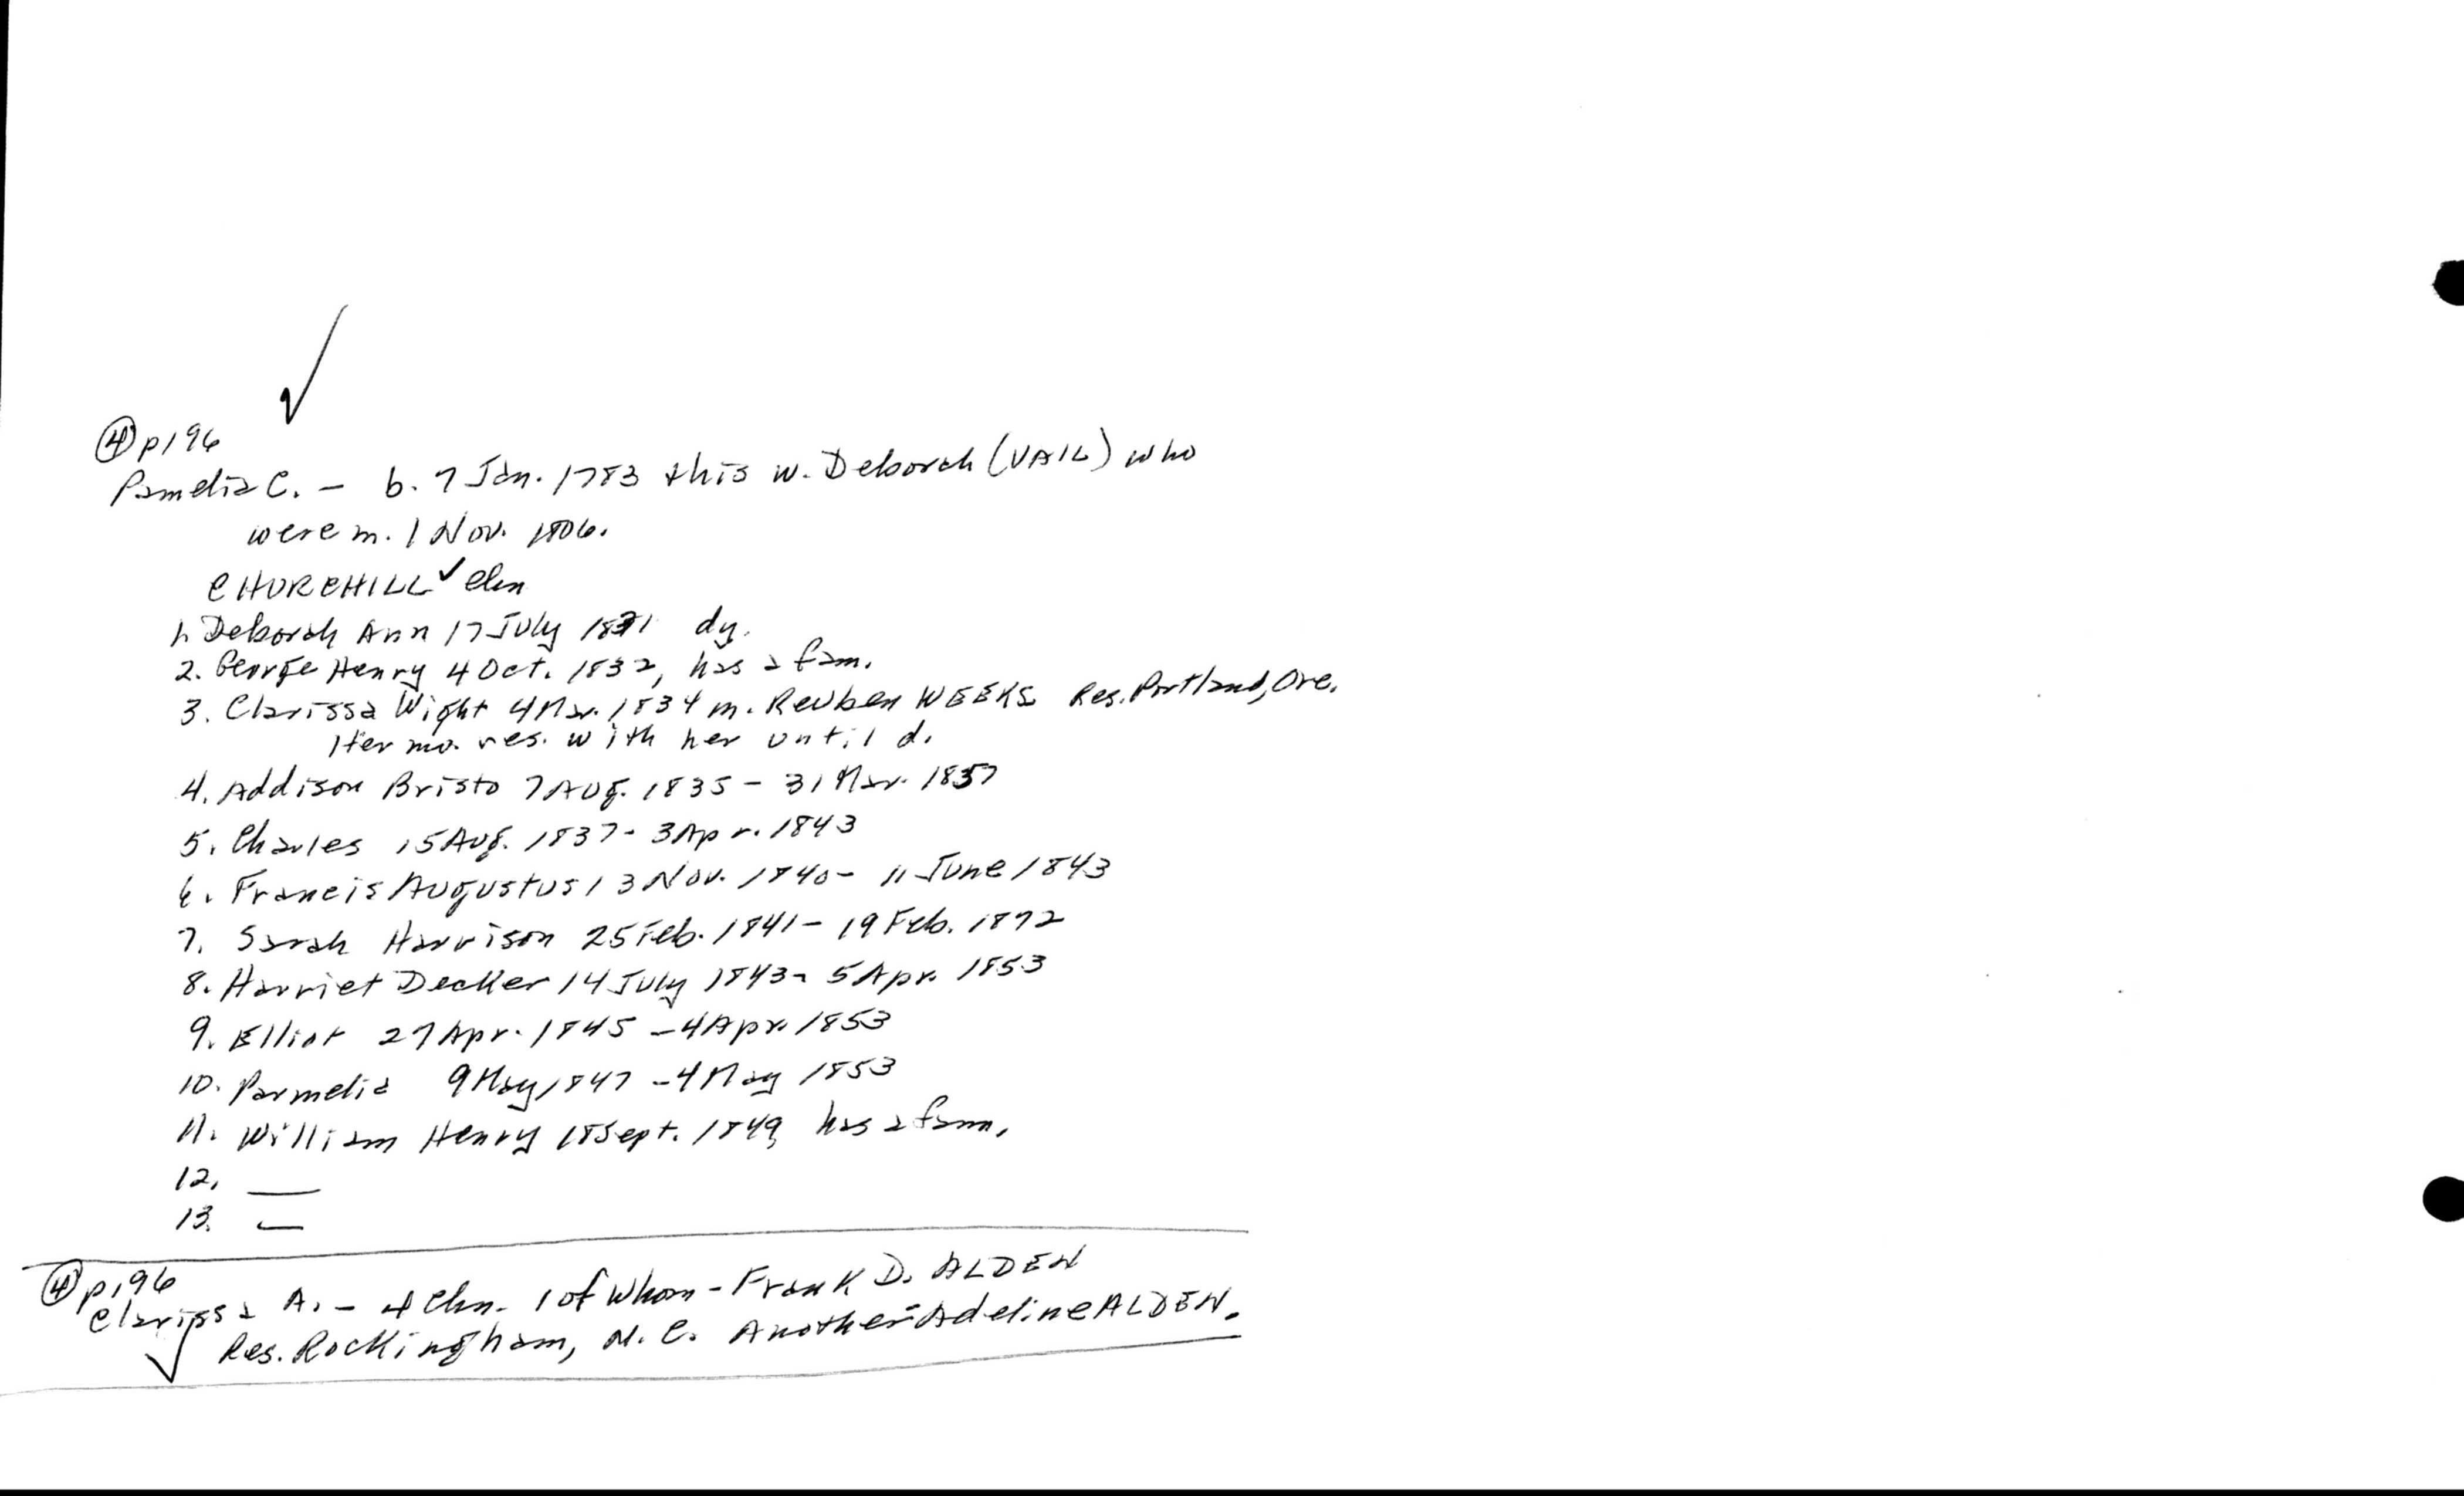 ④ p196
Pamelia C. – b. 7 Jan. 1783 this w. Deborah (VAIL) who
were m. 1 Nov. 1806.
CHURCHILL ✓ chn
1. Deborah Ann 17 July 1831 dy.
2. George Henry 4 Oct. 1832, has a fam.
3. Clarissa Wight 4 Mar. 1834 m. Reuben WEEKS Res. Portland, Ore.
Her mo. res. with her until d.
4. Addison Bristo 7 Aug. 1835 – 31 Mar. 1837
5. Charles 15 Aug. 1837 - 3 Apr. 1843
6. Francis Augustus 13 Nov. 1840 – 11 June 1843
7. Sarah Harrison 25 Feb. 1841 – 19 Feb. 1872
8. Harriet Decker 14 July 1843 - 5 Apr. 1853
9. Elliot 27 Apr. 1845 – 4 Apr. 1853
10. Parmelia 9 May 1847 – 4 May 1853
11. William Henry 18 Sept. 1849, has a fam.
12. __
13. __
④ p196
Clarissa A. – 4 chn. 1 of whom – Frank D. ALDEN
✓ Res. Rockingham, N. C. Another = Adeline ALDEN.